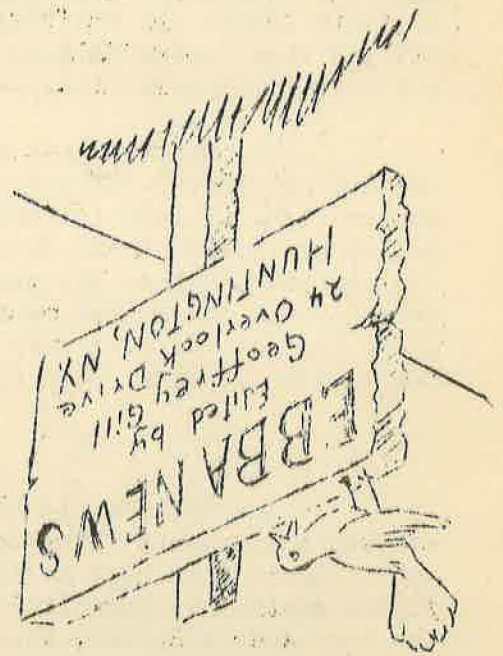 EBBA NEWS
Edited by
Geoffrey Gill
24 Overlook Drive
HUNTINGTON, NY.